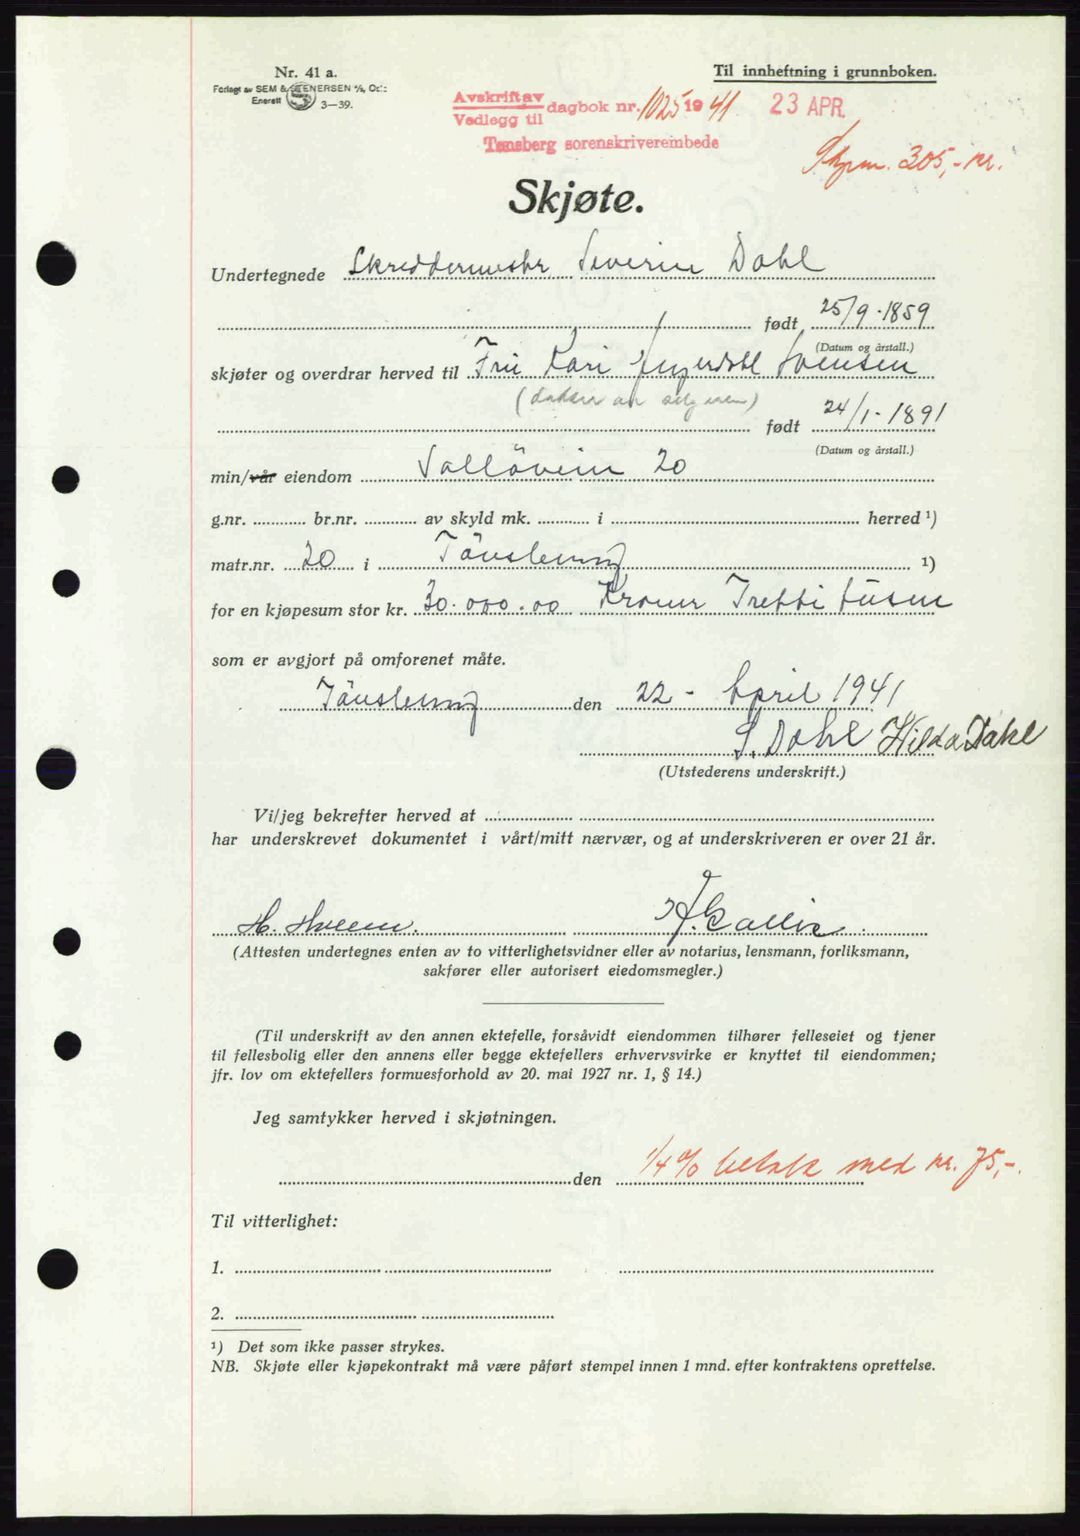 Nr. 41 a.
Til innheftning i grunnboken.
Forlagt av SEM & STENERSEN A/S, Oslo
Enerett 3—39.
Avskrift av
Vedlegg til dagbok nr. 1025 19 41 23 APR.
Tønsberg sorenskriverembede
305,- kr.
Skjøte.
Undertegnede Skreddermester Severin Dahl
født 25/9-1859
(Datum og årstall.)
skjøter og overdrar herved til Fru Kari Ingerdahl Svensen
(datter av selgeren)
født 24/1-1891
(Datum og årstall.)
min/vår eiendom Vallöveien 20
g.nr. br.nr. av skyld mk. i herred ¹)
matr.nr. 20 i Tönsberg ¹)
for en kjøpesum stor kr. 30.000.00 Kroner Tretti tusen
som er avgjort på omforenet måte.
Tönsberg den 22 - April 1941
S. Dahl Hilda Dahl
(Utstederens underskrift.)
Vi/jeg bekrefter herved at
har underskrevet dokumentet i vårt/mitt nærvær, og at underskriveren er over 21 år.
H.
(Attesten undertegnes enten av to vitterlighetsvidner eller av notarius, lensmann, forliksmann,
sakfører eller autorisert eiedomsmegler.)
(Til underskrift av den annen ektefelle, forsåvidt eiendommen tilhører felleseiet og tjener
til fellesbolig eller den annens eller begge ektefellers erhvervsvirke er knyttet til eiendommen;
jfr. lov om ektefellers formuesforhold av 20. mai 1927 nr. 1, § 14.)
Jeg samtykker herved i skjøtningen.
den 1/4 % betalt med kr. 75,-.
Til vitterlighet:
1.
2.
¹) Det som ikke passer strykes.
NB. Skjøte eller kjøpekontrakt må være påført stempel innen 1 mnd. efter kontraktens oprettelse.